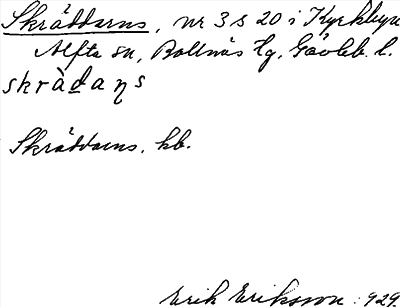 Skräddarns, nr 3 s 20 i Kyrkbyn
Alfta sn, Bollnäs tg, Gävleb. l.
skrädaṇs
Skräddarns. hb.
Erik Eriksson. 929.